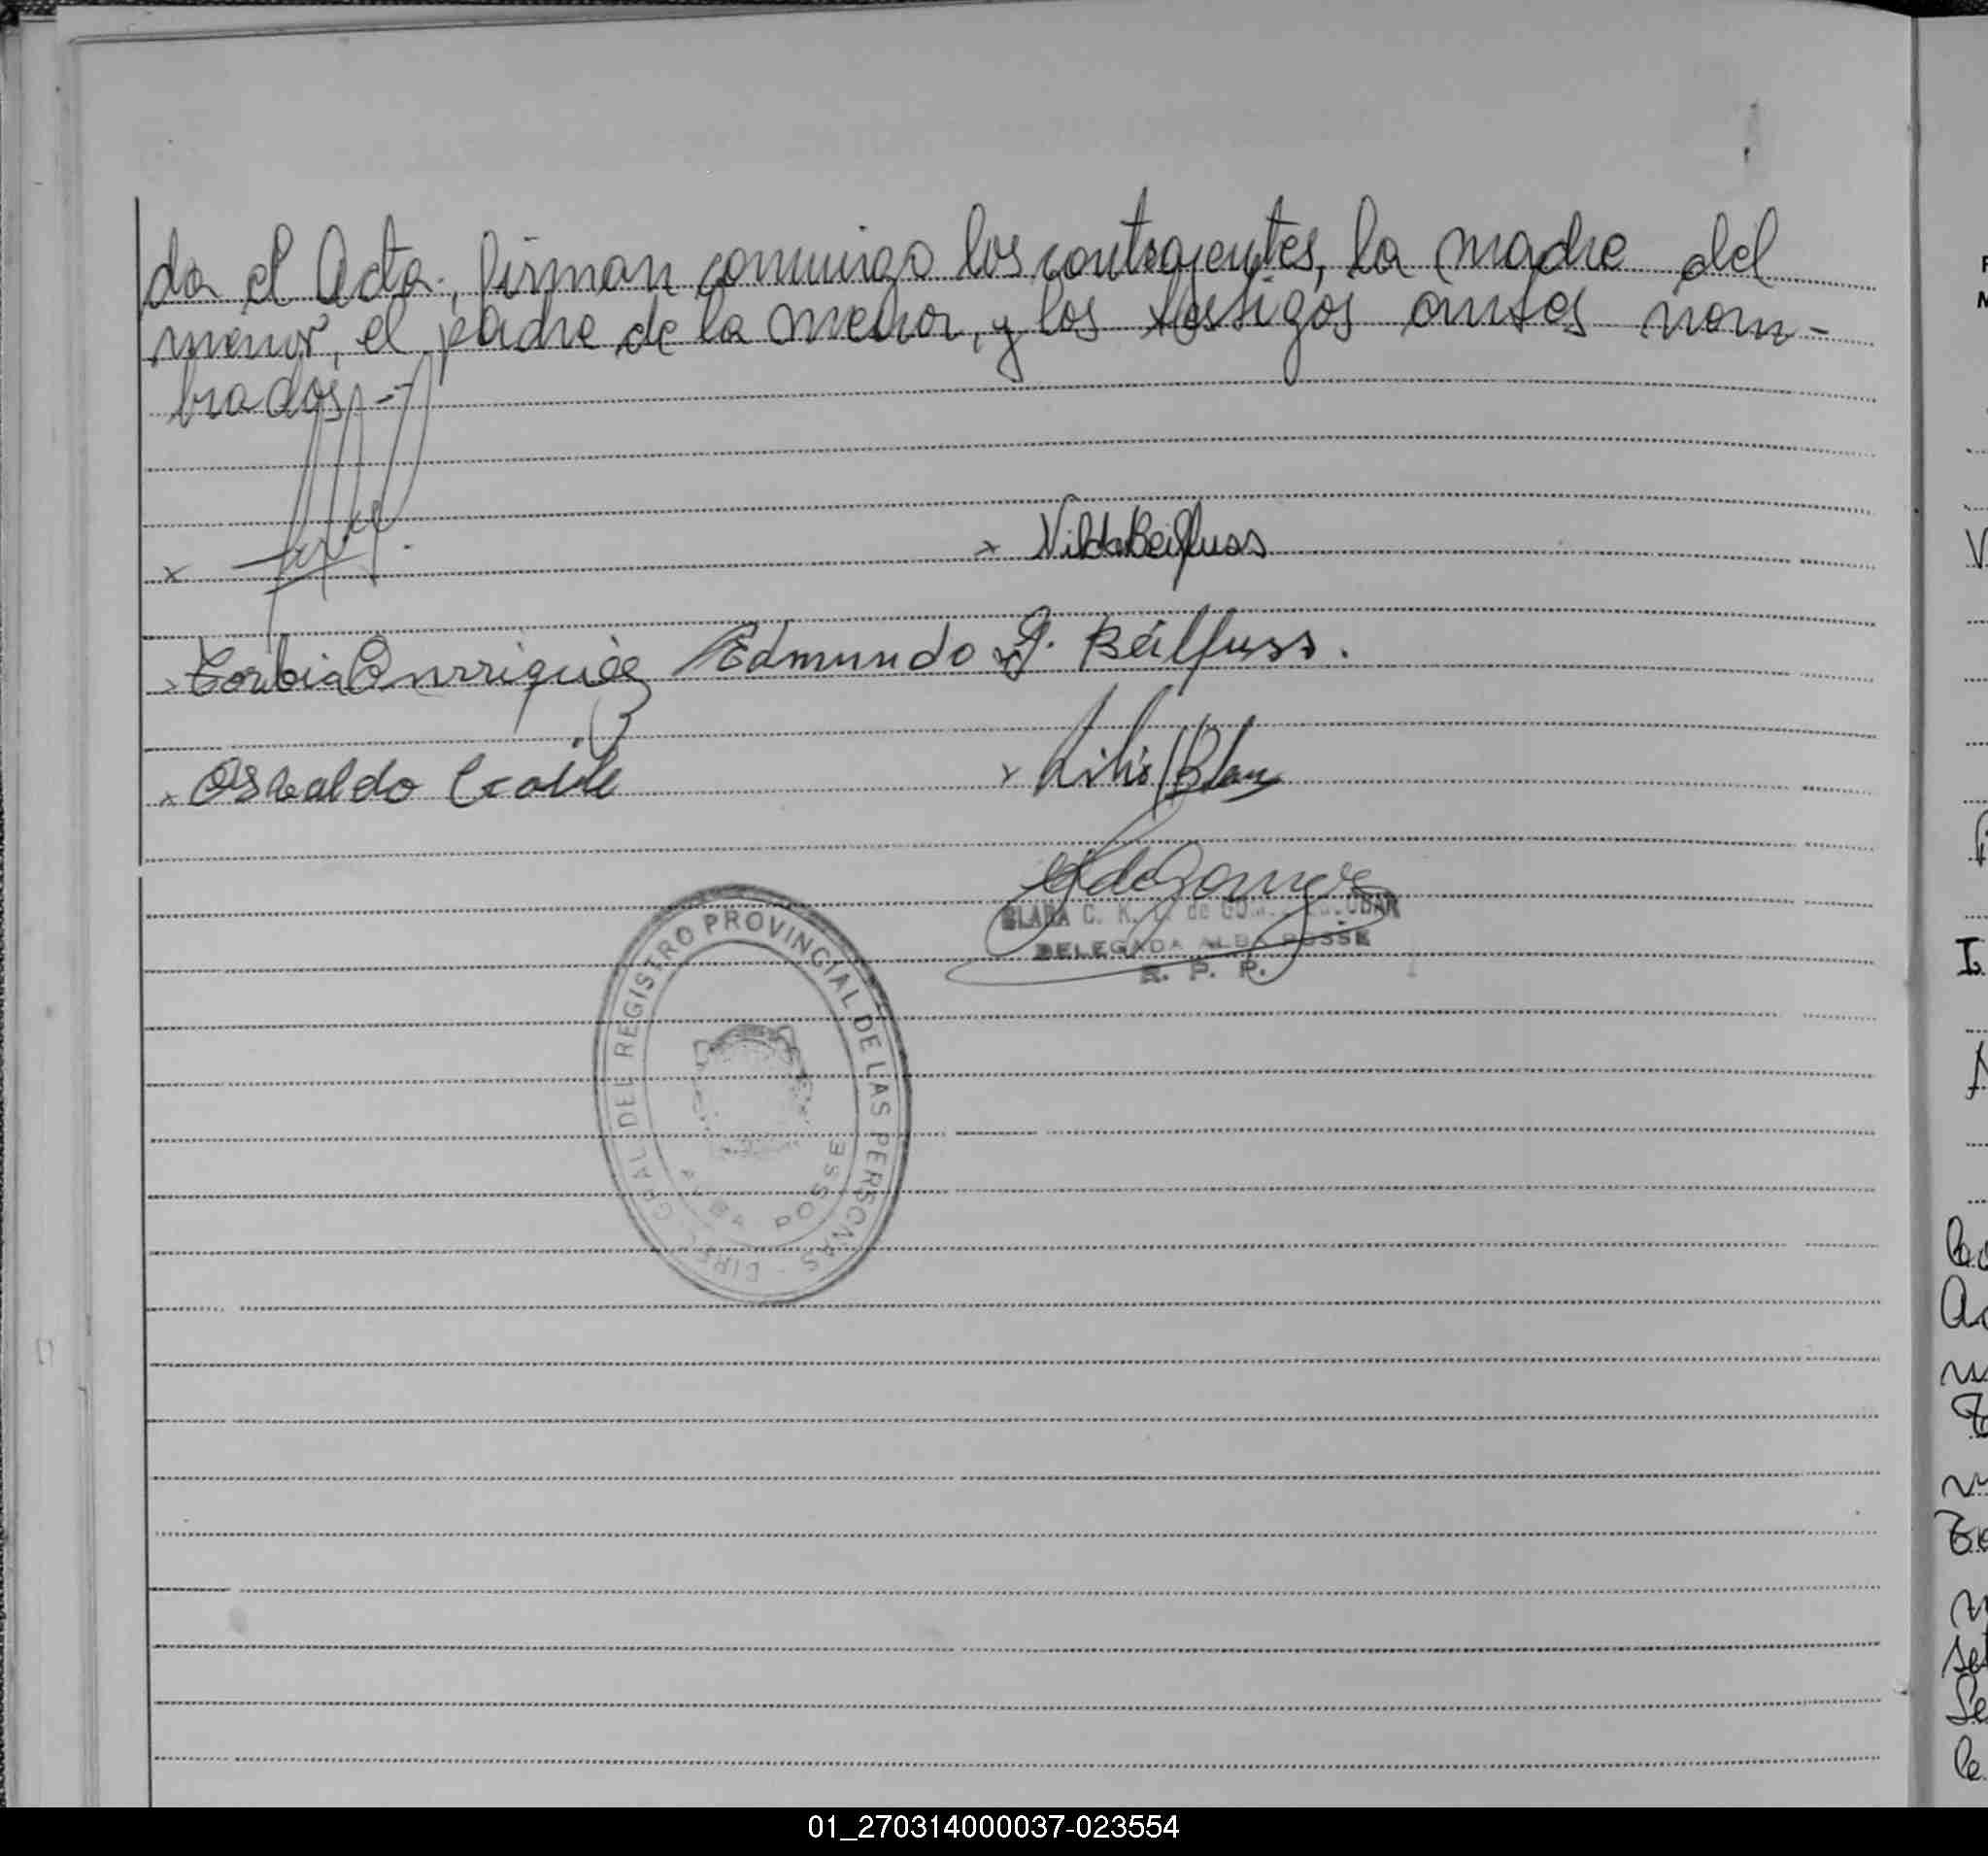 da el Acta., firman conmigo los contrayentes, la madre del
menor, el padre de la menor, y los testigos antes nom-
brados.-
x
x Nilda Beilfuss
Edmundo A. Beilfuss.
x Osvaldo
x
CLARA C. K. de
DELEGADA ALBA POSSE
R. P. P.
GRAL DEL REGISTRO PROVINCIAL DE LAS PERSONAS - DIREC
ALBA POSSE
01_270314000037-023554